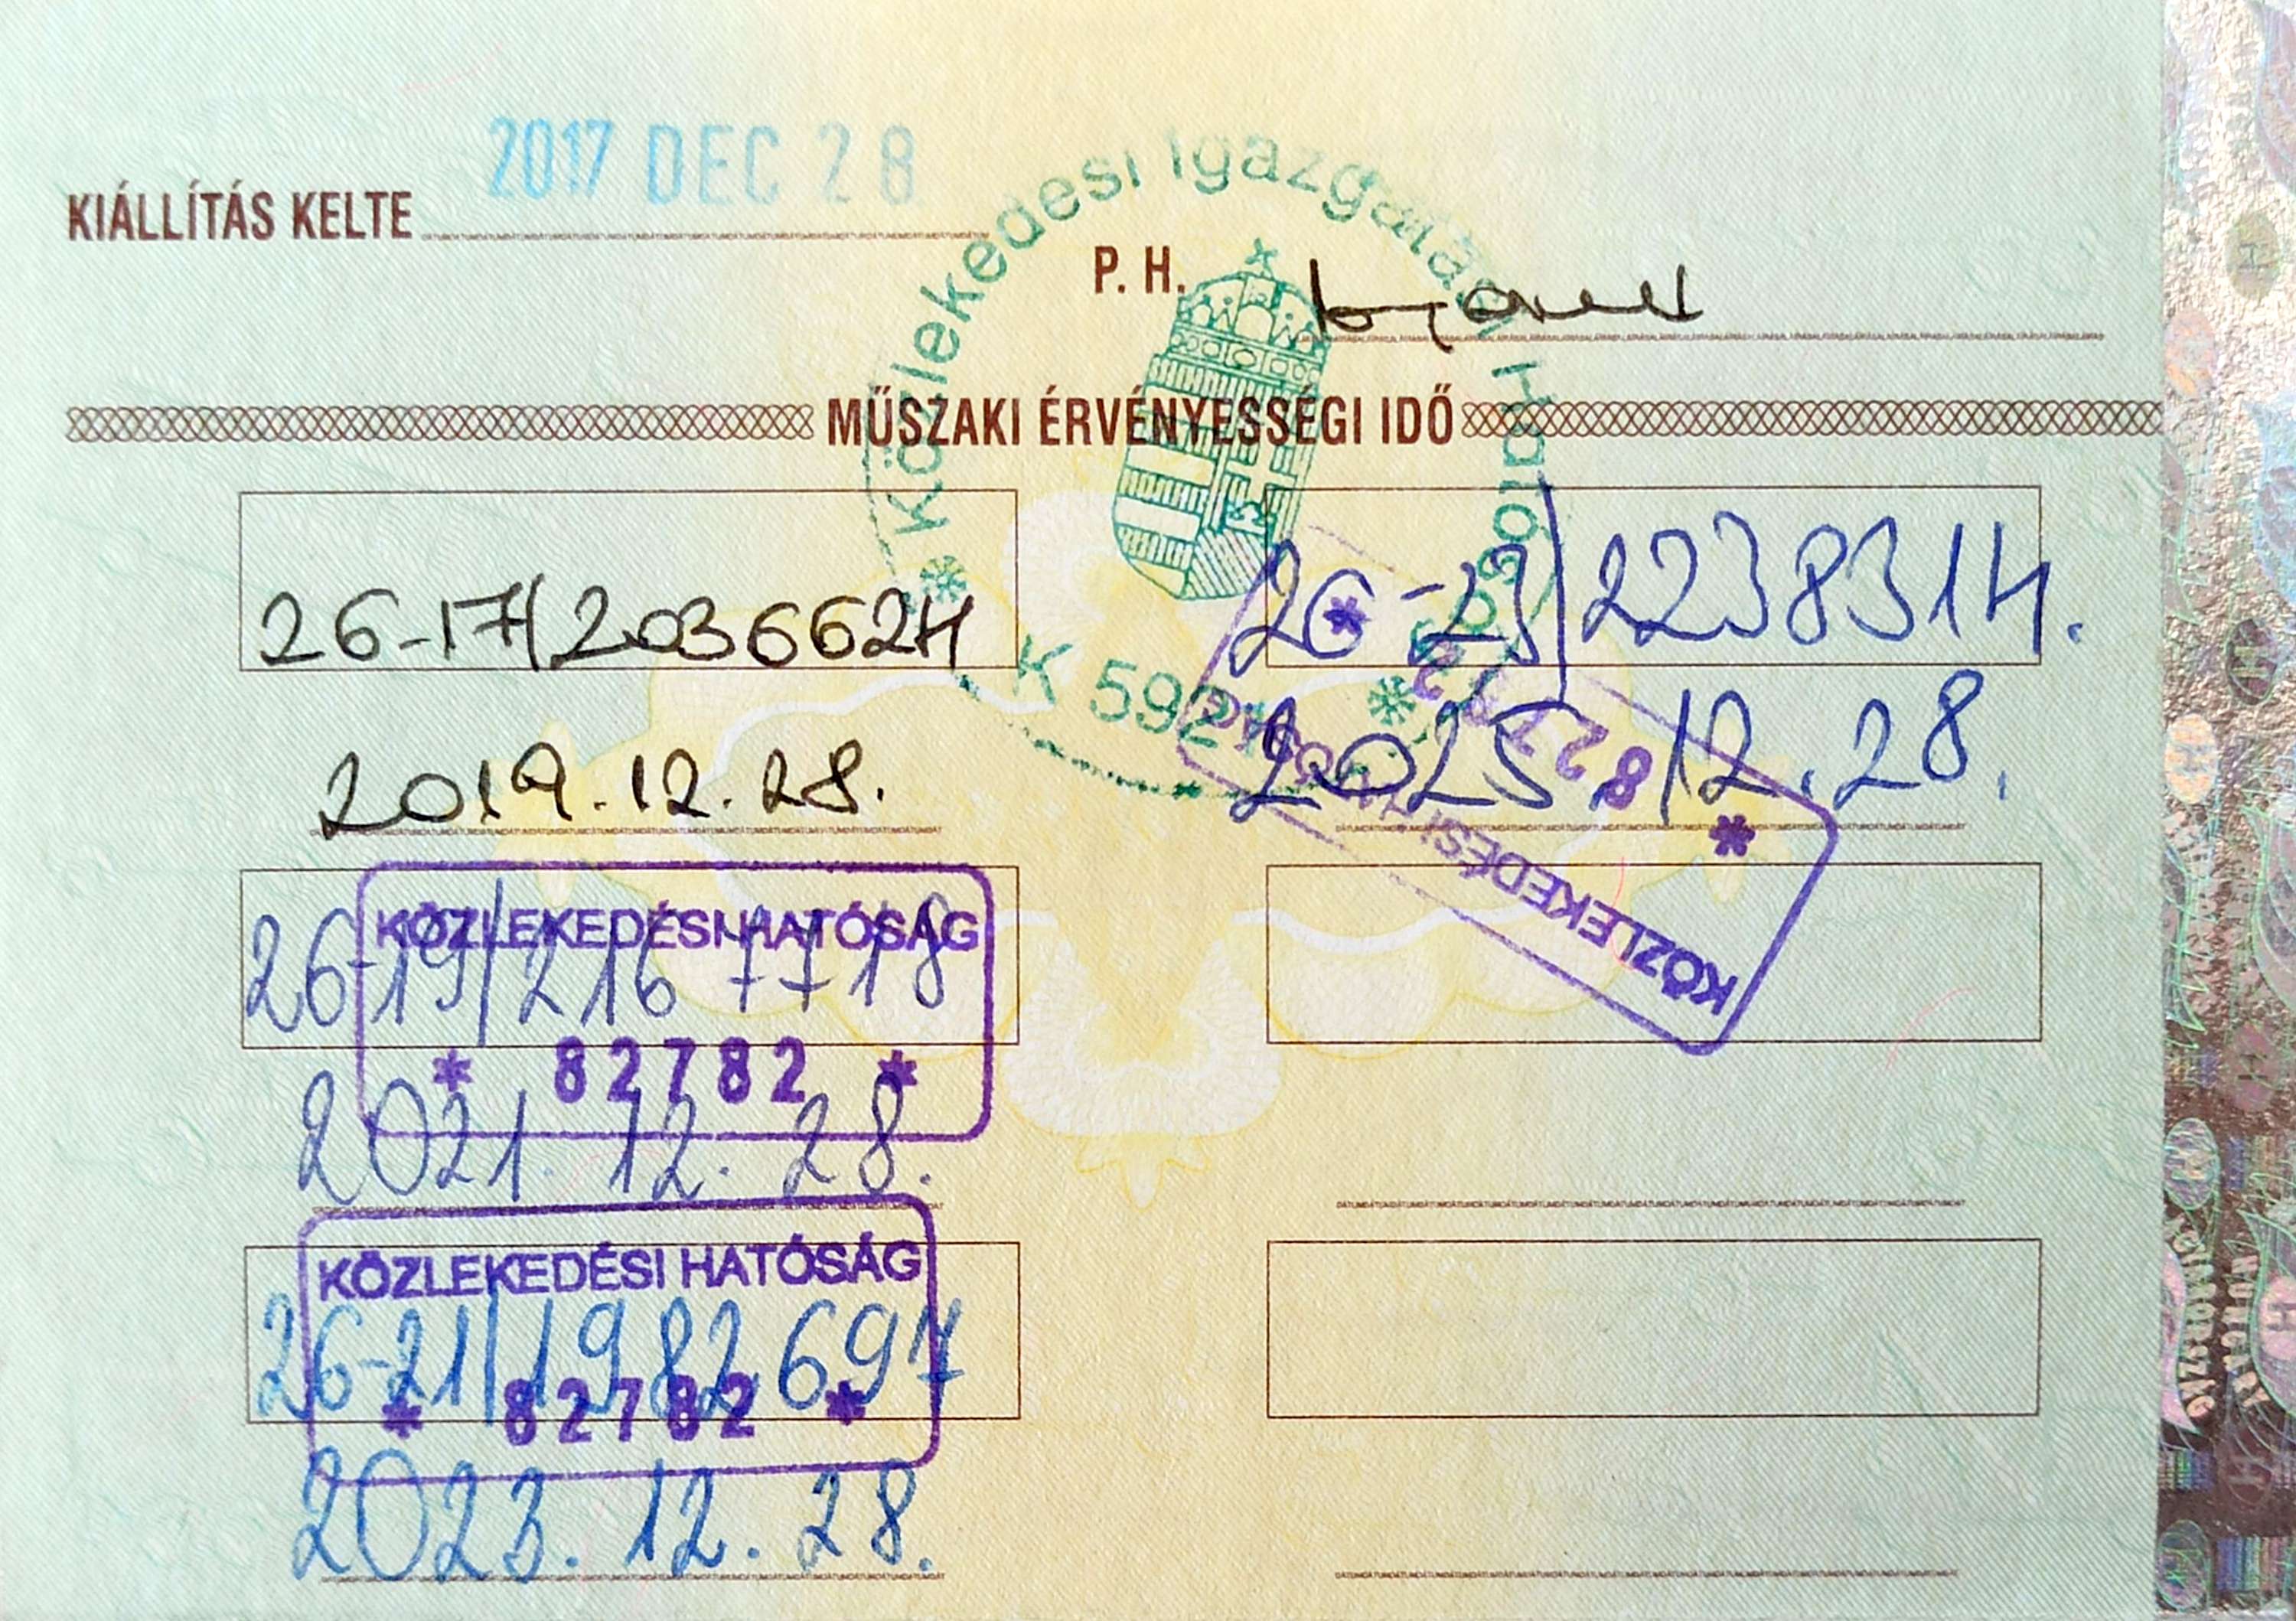 2017 DEC 28
KIÁLLÍTÁS KELTE
Közlekedési Igazgatási Hatóság
P. H.
K 592
MŰSZAKI ÉRVÉNYESSÉGI IDŐ
26-17/2036624
2019.12.28.
KÖZLEKEDÉSI HATÓSÁG
26-19/2167718
* 82782 *
2021.12.28.
KÖZLEKEDÉSI HATÓSÁG
26-21/1982697
* 82782 *
2023.12.28.
26-23/2238314.
2025/12.28.
KÖZLEKEDÉSI HATÓSÁG
* 82782 *
MAGYARORSZÁG
HUNGARY